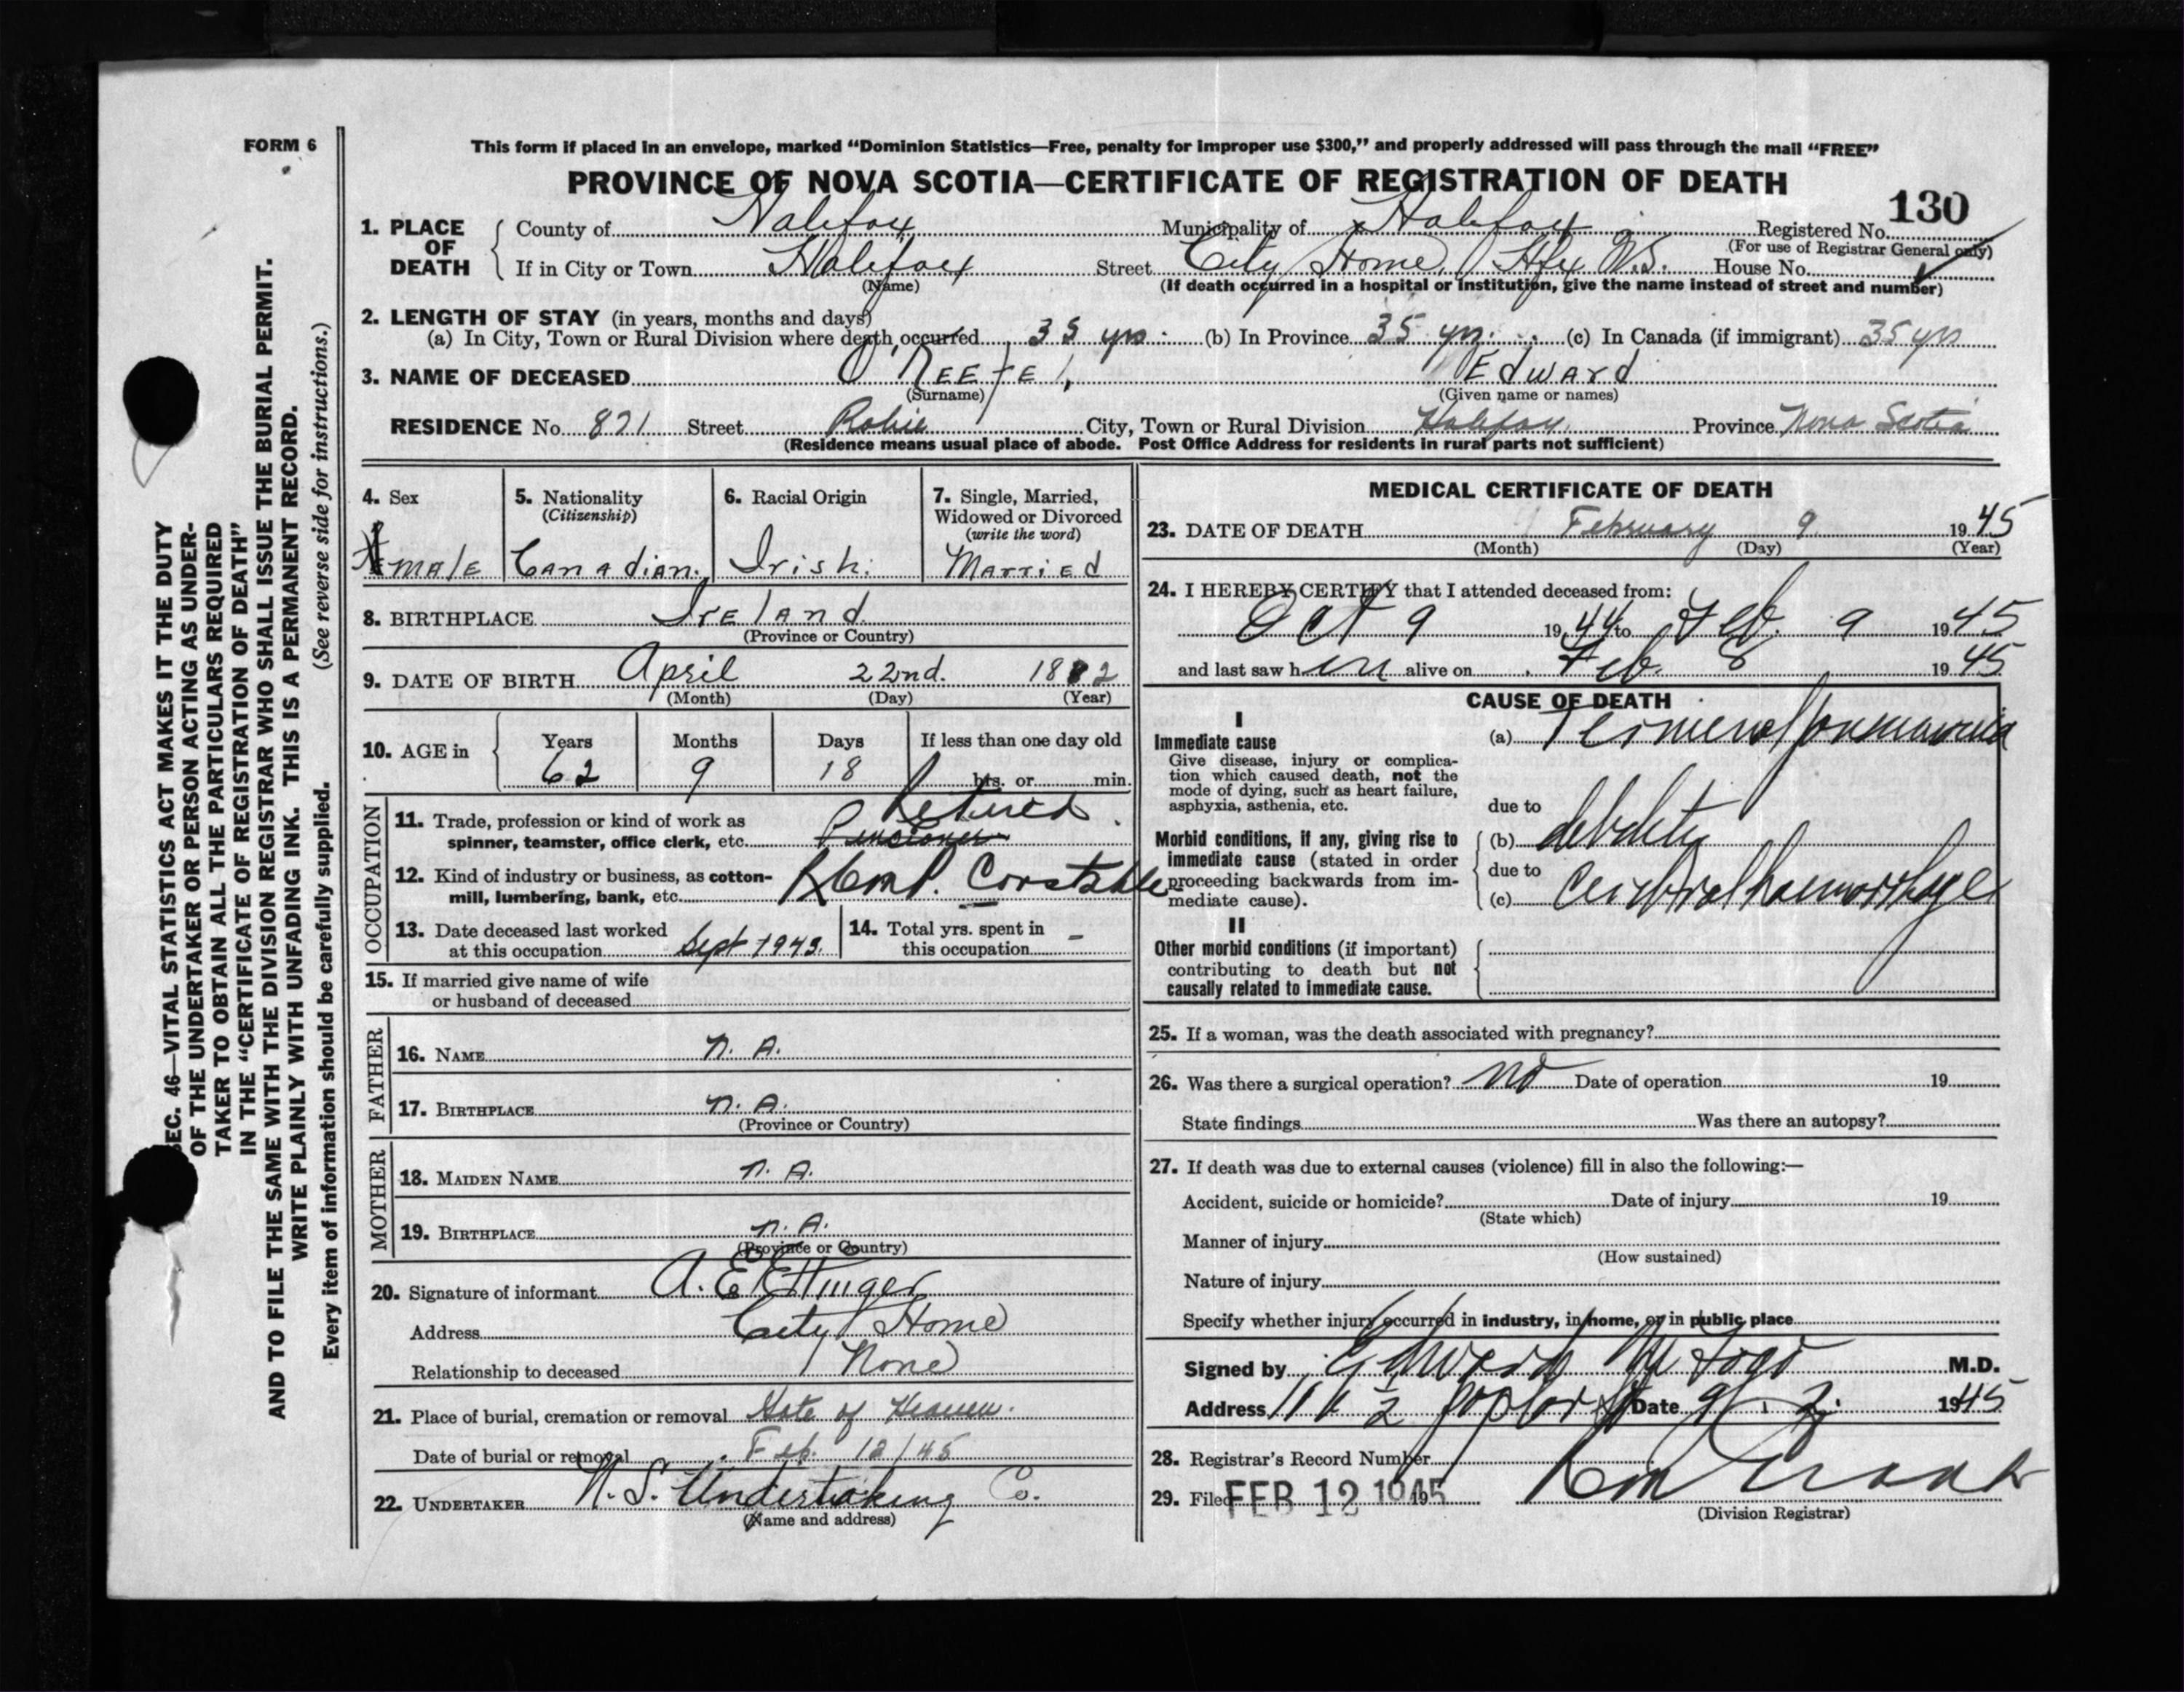 FORM 6
This form if placed in an envelope, marked “Dominion Statistics—Free, penalty for improper use $300,” and properly addressed will pass through the mail “FREE”
PROVINCE OF NOVA SCOTIA—CERTIFICATE OF REGISTRATION OF DEATH
130
1. PLACE OF DEATH
County of Halifax Municipality of Halifax Registered No.
(For use of Registrar General only)
If in City or Town Halifax Street City Home, Hfx N.S. House No.
(Name) (If death occurred in a hospital or institution, give the name instead of street and number)
2. LENGTH OF STAY (in years, months and days)
(a) In City, Town or Rural Division where death occurred 35 yrs. (b) In Province 35 yrs. (c) In Canada (if immigrant) 35 yrs
3. NAME OF DECEASED Edward
(Surname) (Given name or names)
RESIDENCE No. 821 Street Robie City, Town or Rural Division Halifax Province Nova Scotia
(Residence means usual place of abode. Post Office Address for residents in rural parts not sufficient)
4. Sex
Male
5. Nationality
(Citizenship)
Canadian.
6. Racial Origin
Irish.
7. Single, Married,
Widowed or Divorced
(write the word)
Married
8. BIRTHPLACE Ireland.
(Province or Country)
9. DATE OF BIRTH April 22nd. 1882
(Month) (Day) (Year)
10. AGE in
Years Months Days If less than one day old
62 9 18 hrs. or min.
OCCUPATION
Retired
11. Trade, profession or kind of work as
spinner, teamster, office clerk, etc. Pensioner
12. Kind of industry or business, as cotton-
mill, lumbering, bank, etc. Constable
13. Date deceased last worked
at this occupation Sept 1943.
14. Total yrs. spent in
this occupation -
15. If married give name of wife
or husband of deceased
FATHER
16. NAME N. A.
17. BIRTHPLACE N. A.
(Province or Country)
MOTHER
18. MAIDEN NAME N. A.
19. BIRTHPLACE N. A.
(Province or Country)
20. Signature of informant A. E Ettinger
Address City Home
Relationship to deceased None
21. Place of burial, cremation or removal Gate of Heaven.
Date of burial or removal Feb. 12/45
22. UNDERTAKER N. S. Undertaking Co.
(Name and address)
MEDICAL CERTIFICATE OF DEATH
23. DATE OF DEATH February 9. 1945
(Month) (Day) (Year)
24. I HEREBY CERTIFY that I attended deceased from:
Oct 9 1944 to Feb. 9 1945
and last saw him alive on Feb. 8 1945
CAUSE OF DEATH
I
Immediate cause
Give disease, injury or complica-
tion which caused death, not the
mode of dying, such as heart failure,
asphyxia, asthenia, etc.
(a) Terminal pneumonia
due to
Morbid conditions, if any, giving rise to
immediate cause (stated in order
proceeding backwards from im-
mediate cause).
(b) debility
due to
(c) Cerebral haemorrhage
II
Other morbid conditions (if important)
contributing to death but not
causally related to immediate cause.
25. If a woman, was the death associated with pregnancy?
26. Was there a surgical operation? no Date of operation 19
State findings Was there an autopsy?
27. If death was due to external causes (violence) fill in also the following:—
Accident, suicide or homicide? Date of injury 19
(State which)
Manner of injury
(How sustained)
Nature of injury
Specify whether injury occurred in industry, in home, or in public place
Signed by Edward M.D.
Address Date 9 . 2. 1945
28. Registrar's Record Number
29. Filed FEB 12 1945
(Division Registrar)
SEC. 46—VITAL STATISTICS ACT MAKES IT THE DUTY
OF THE UNDERTAKER OR PERSON ACTING AS UNDER-
TAKER TO OBTAIN ALL THE PARTICULARS REQUIRED
IN THE “CERTIFICATE OF REGISTRATION OF DEATH”
AND TO FILE THE SAME WITH THE DIVISION REGISTRAR WHO SHALL ISSUE THE BURIAL PERMIT.
WRITE PLAINLY WITH UNFADING INK. THIS IS A PERMANENT RECORD.
Every item of information should be carefully supplied. (See reverse side for instructions.)